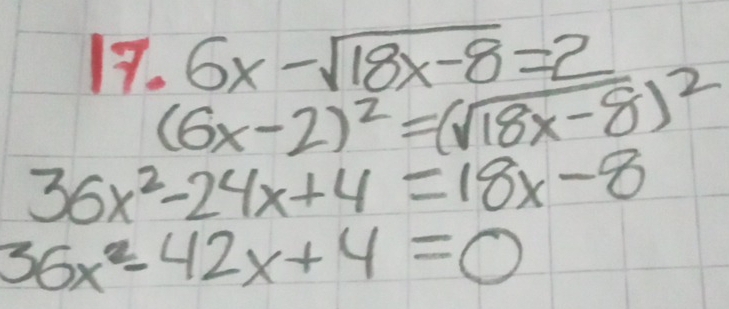 17. 6x-√18x-8=2
(6x-2)²=(√18x-8)²
36x²-24x+4=18x-8
36x²-42x+4=0